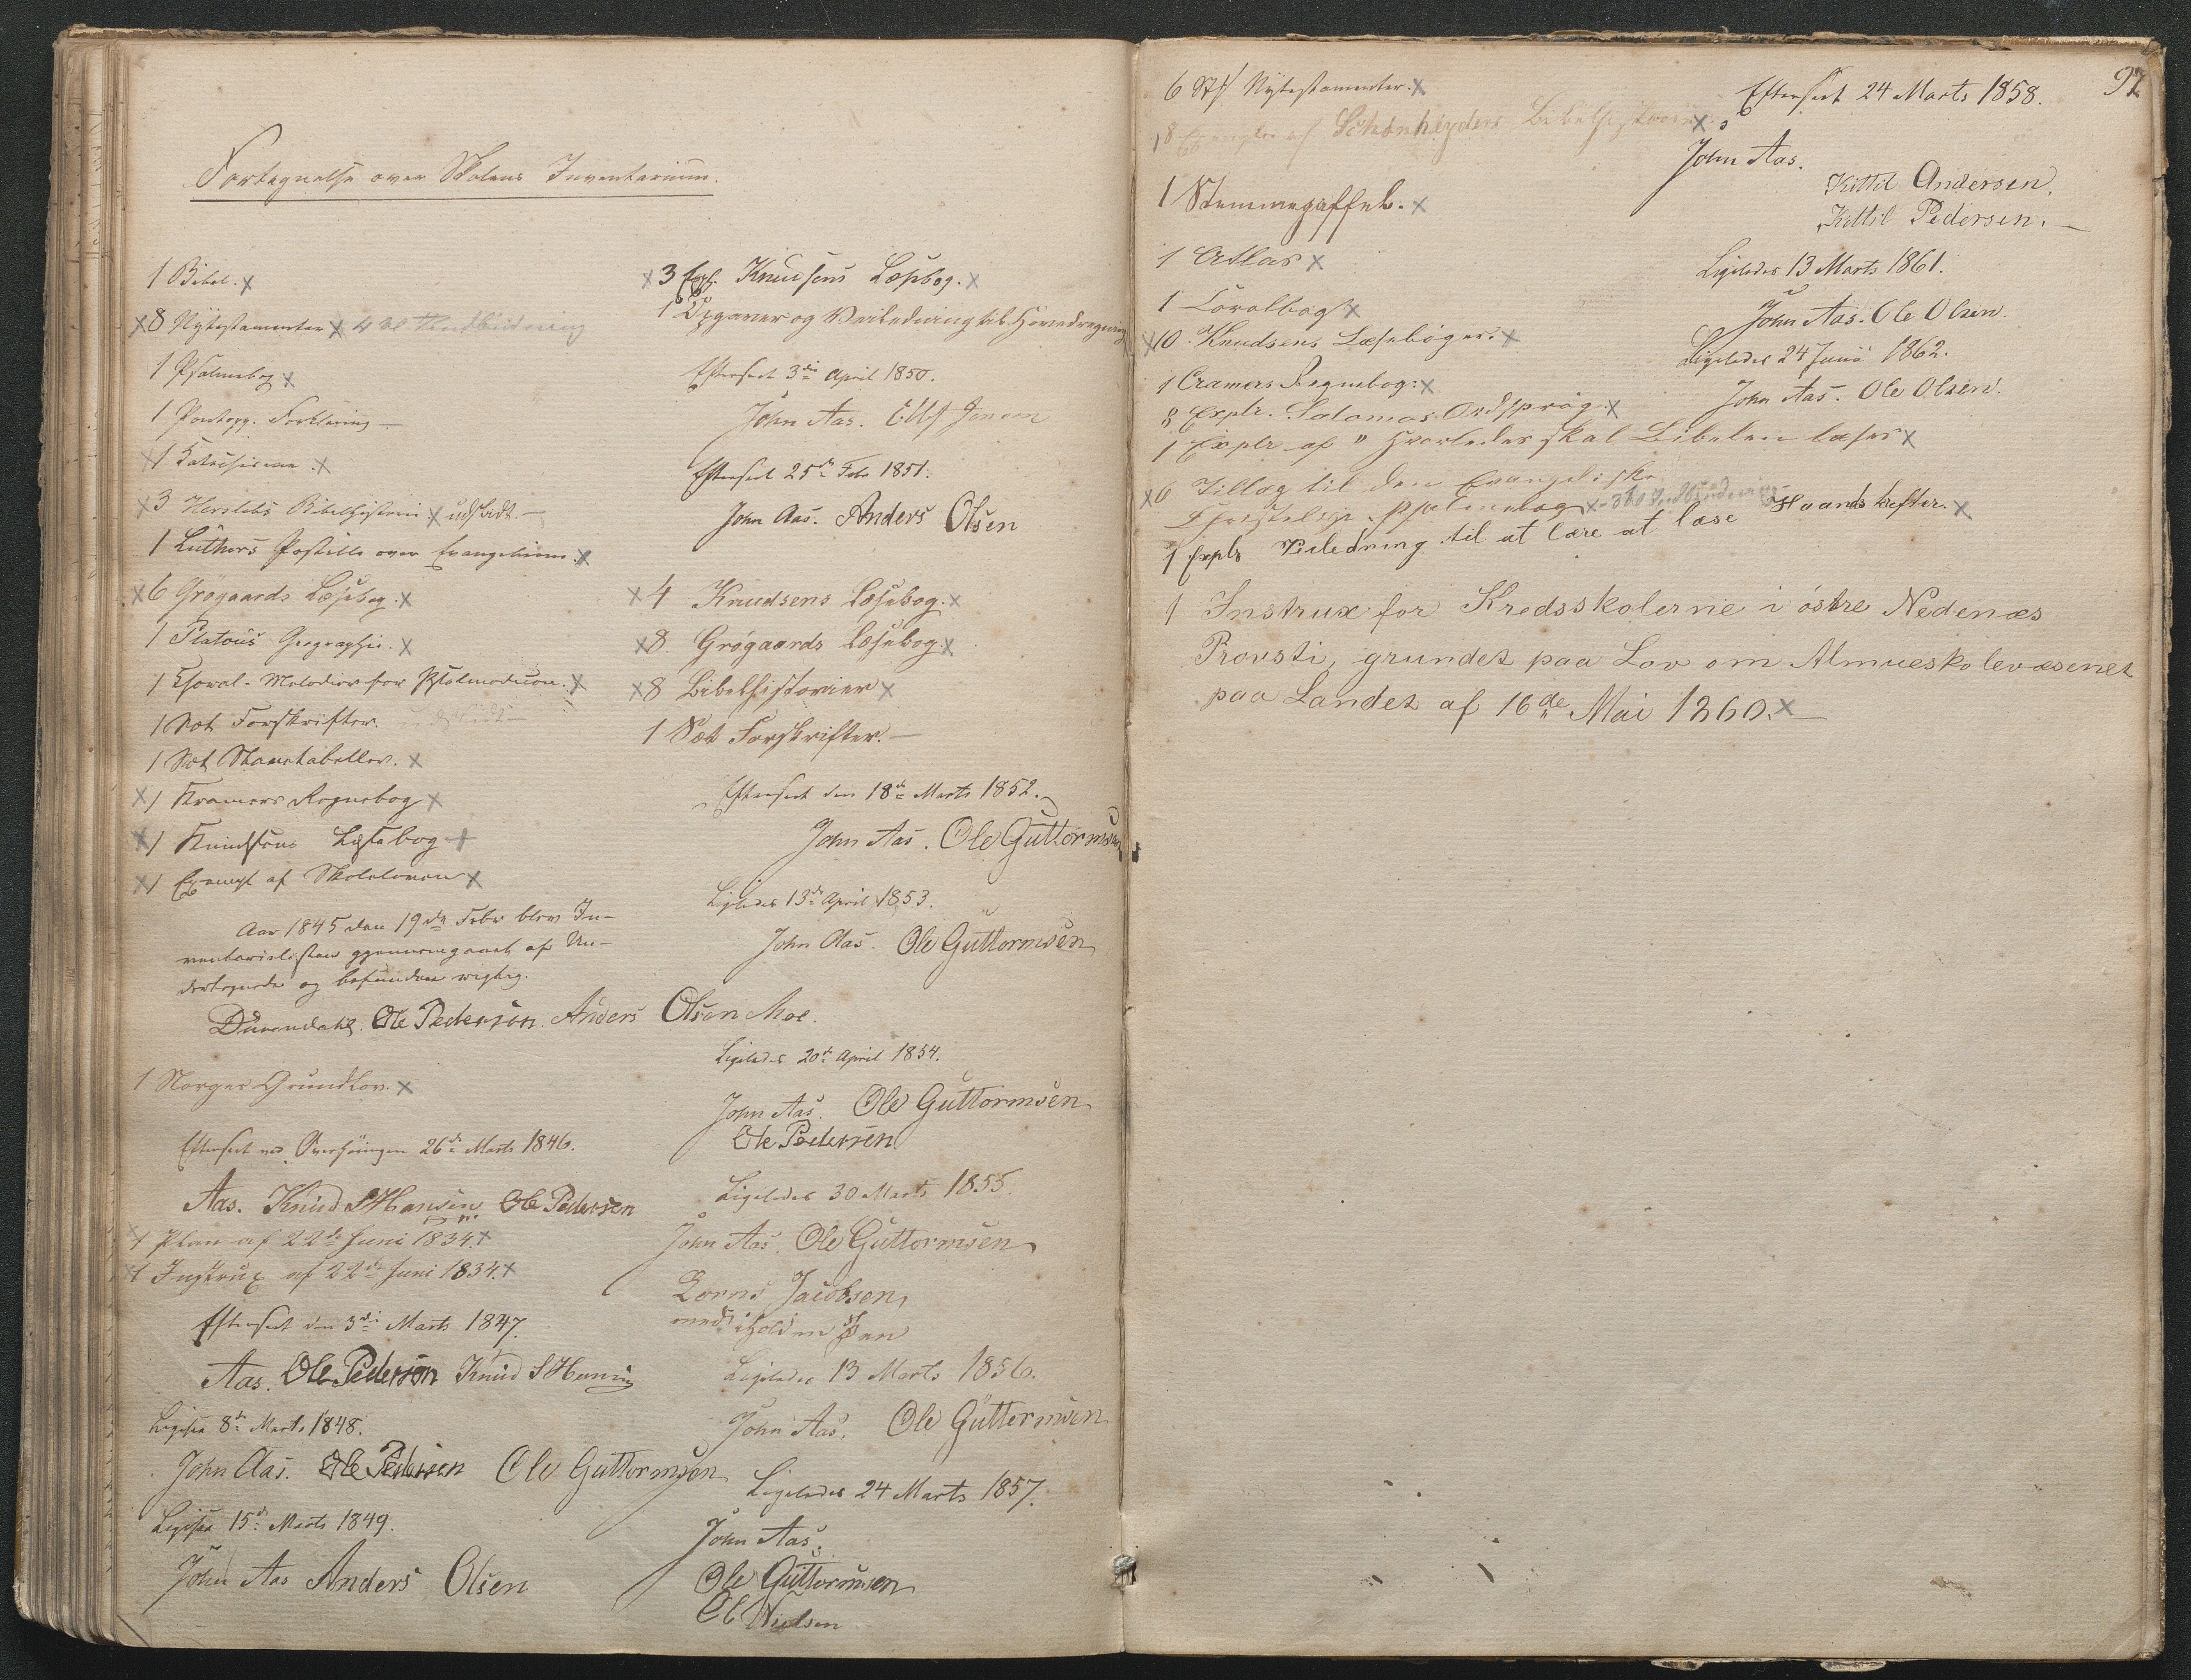 Fortegnelse over Skolens Inventarium.
1 Bibel. x
x 8 Nytestamenter x 4 til Indbinding
1 Psalmebog x
1 Pontopp. Forklaring —
x 1 Katechisme x
x 3 Herslebs Bibelhistorie x udslidt. —
1 Luthers Postille over Evangelierne. x
x 6 Grøgaards Læsebog. x
1 Platous Geographie. x
1 Choral-Melodier for Psalmodicon. x
1 Sæt Forskrifter. udslidt —
1 Sæt Stavetabeller. x
x 1 Kramers Regnebog x
x 1 Knudsens Læsebog x
x 1 Exempl af Skoleloven x
Aar 1845 den 19de Febr blev In-
ventarielisten gjennemgaaet af Un-
dertegnede og befunden rigtig.
Ole Pedersen. Anders Olsen Moe.
1 Norges Grundlov. x
Efterseet ved Overhøringen 26de Marts 1846.
Aas. Knud SHansen Ole Pedersen
x 1 Plan af 22de Juni 1834. x
x 1 Instrux af 22de Juni 1834. x
Efterseet den 3die Marts 1847.
Aas. Ole Pederson Knud SHansen
Ligesaa 8de Marts 1848.
John Aas. Ole Pedersen Ole Guttormsen
Ligesaa 15de Marts 1849.
John Aas Anders Olsen
x 3 Expl. Knudsens Læsebog. x
1 Opgaver og Veiledning til Hovedregning
Efterseet 3die April 1850.
John Aas. Ellef Jenson
Efterseet 25de Febr 1851.
John Aas. Anders Olsen
x 4 Knudsens Læsebog. x
x 8 Grøgaards Læsebog. x
x 8 Bibelhistorier x
1 Sæt Forskrifter. —
Efterseet den 18de Marts 1852.
John Aas. Ole Guttormsen
Ligeledes 13de April 1853.
John Aas. Ole Guttormsen
Ligeledes 20de April 1854.
John Aas. Ole Guttormsen
Ole Pedersen
Ligeledes 30 Marts 1855.
John Aas. Ole Guttormsen
Jacobsen,
Ligeledes 13 Marts 1856.
John Aas. Ole Guttormsen
Ligeledes 24 Marts 1857.
John Aas.
Ole Guttormsen
Ole Nielsen
97
6 Stk Nytestamenter. x
18 Exempler af Schønheyders Bibelhistorie x
1 Stemmegaffel. x
1 Atlas x
1 Coralbog x
x 10 Knudsens Læsebøger. x
1 Cramers Regnebog. x
8 Explr. Salomos Ordsprog x
1 Explr af "Hvorledes skal Bibelen læses x
x 6 Tillæg til den Evangeliske
Christelige Psalmebog x - 3 til Indbinding
1 Explr Veiledning til at lære at læse Haandskrifter. x
1 Instrux for Kredsskolerne i østre Nedenæs
Provsti, grundet paa Lov om Almueskolevæsenet
paa Landet af 16de Mai 1860. x —
Efterseet 24 Marts 1858.
John Aas.
Kittil Andersen.
Kittil Pedersen. —
Ligeledes 13 Marts 1861.
John Aas. Ole Olsen.
Ligeledes 24 Juni 1862.
John Aas. Ole Olsen.